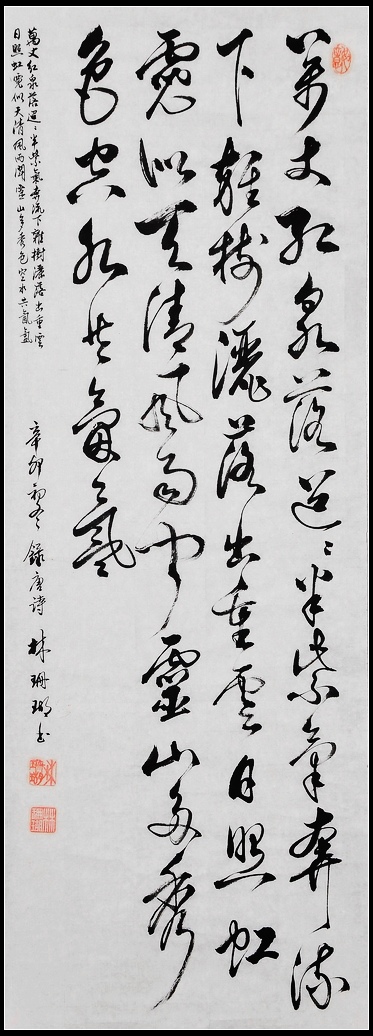 萬丈紅泉落迢〻半紫氣奔流
下雜樹灑落出重雲日照虹
霓似天清風雨聞靈山多秀
色空水共氤氳
萬丈紅泉落迢〻半紫氣奔流下雜樹灑落出重雲
日照虹霓似天清風雨聞靈山多秀色空水共氤氳
辛卯初冬錄唐詩林珊瑚書